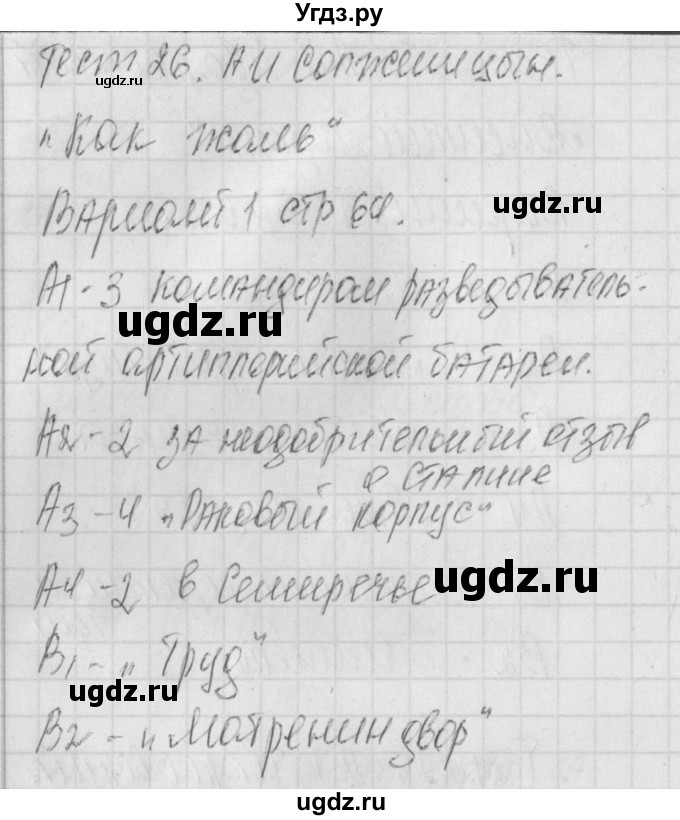 Угдз.ру
Тест 26. А И Солженицын.
ugdz.ru
"Как жаль"
ugdz.ru
Вариант 1 стр 64.
А1-3 командиром разведыватель-
ugdz.ru
ной артиллерийской батареи.
А2-2 за неодобрительный отзыв
о Сталине
ugdz.ru
А3-4 "Раковый корпус"
А4-2 в Семиречье
ugdz.ru
В1-"Труд"
ugdz.ru
В2-"Матренин двор"
ugdz.ru
ugdz.ru